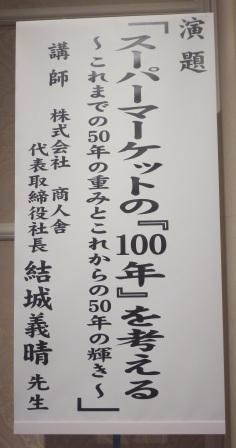 演題
「スーパーマーケットの『100年』を考える
～これまでの50年の重みとこれからの50年の輝き～」
講師　株式会社　商人舎
代表取締役社長　結城義晴　先生